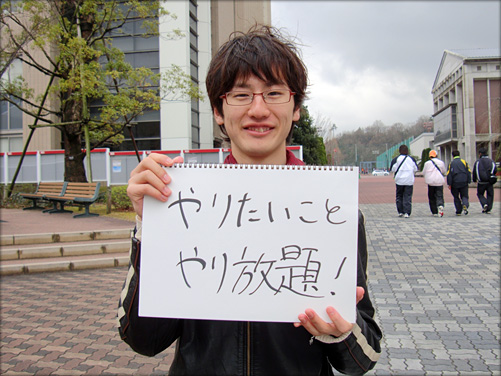 やりたいこと
やり放題！